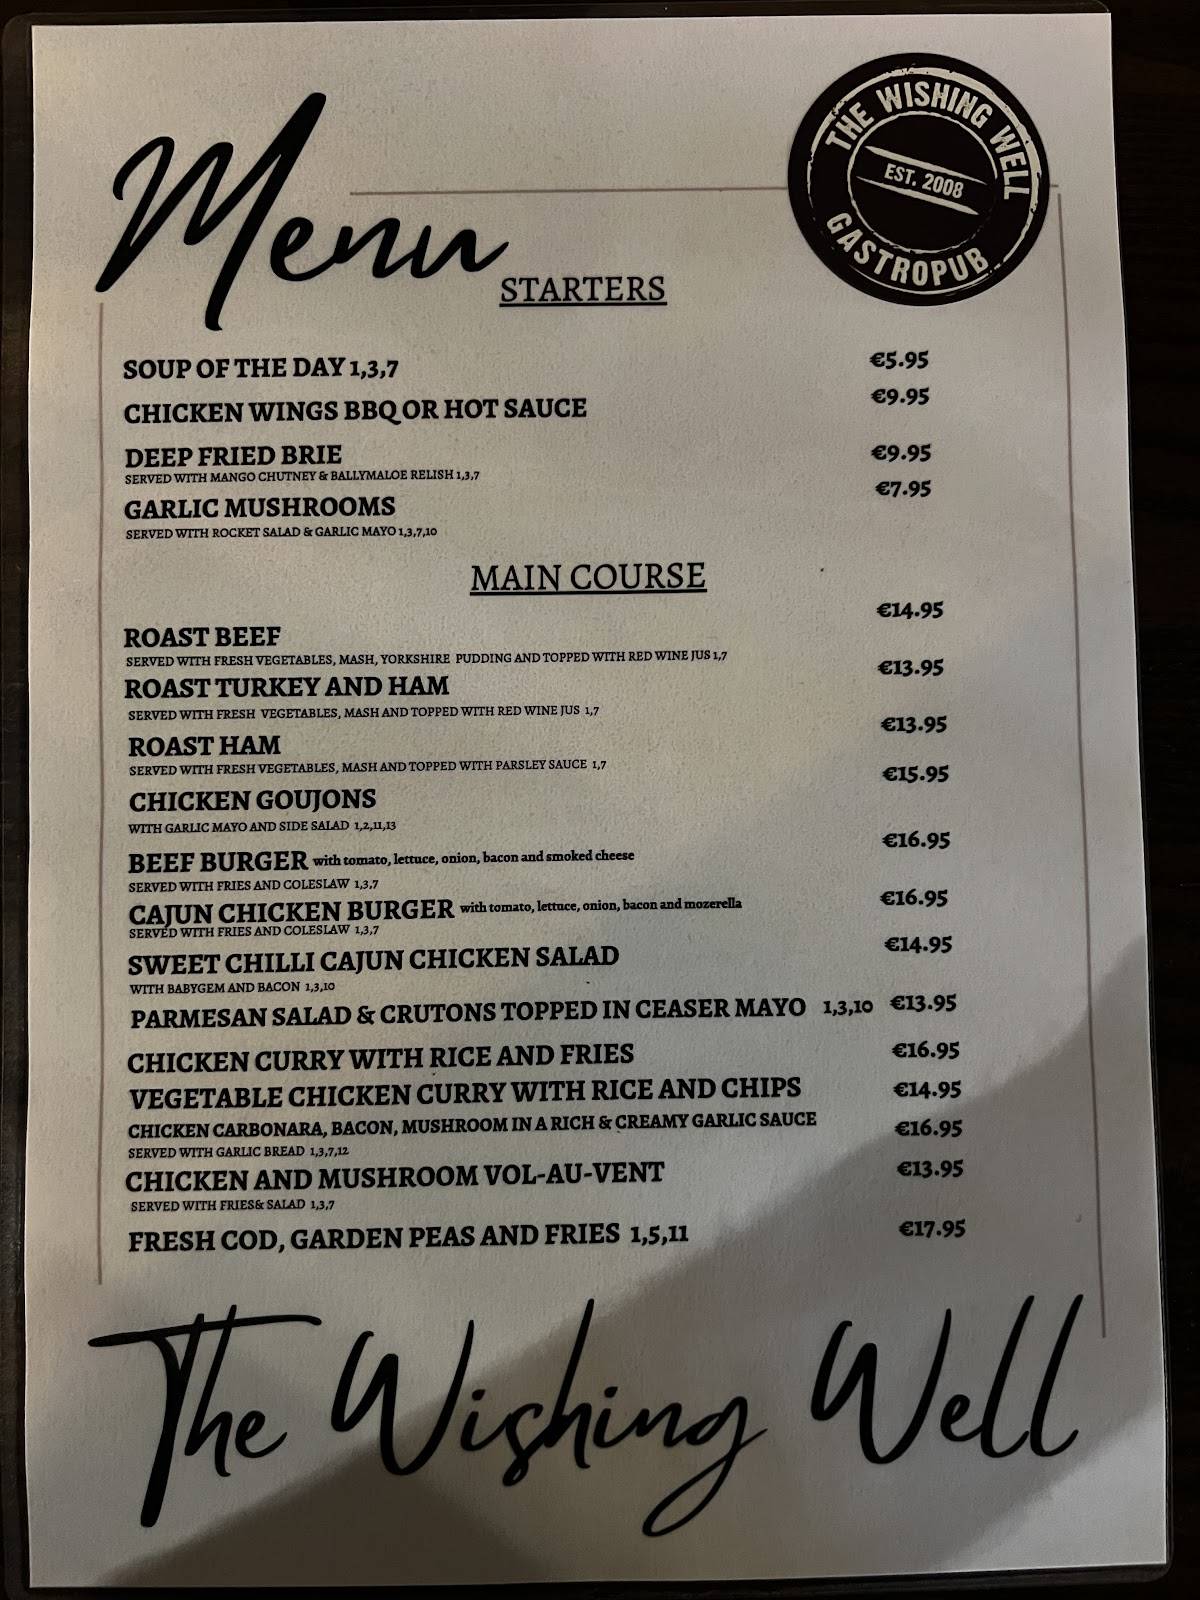 Menu
THE WISHING WELL
EST. 2008
GASTROPUB
STARTERS
SOUP OF THE DAY 1,3,7 €5.95
CHICKEN WINGS BBQ OR HOT SAUCE €9.95
DEEP FRIED BRIE €9.95
SERVED WITH MANGO CHUTNEY & BALLYMALOE RELISH 1,3,7
GARLIC MUSHROOMS €7.95
SERVED WITH ROCKET SALAD & GARLIC MAYO 1,3,7,10
MAIN COURSE
ROAST BEEF €14.95
SERVED WITH FRESH VEGETABLES, MASH, YORKSHIRE PUDDING AND TOPPED WITH RED WINE JUS 1,7
ROAST TURKEY AND HAM €13.95
SERVED WITH FRESH VEGETABLES, MASH AND TOPPED WITH RED WINE JUS 1,7
ROAST HAM €13.95
SERVED WITH FRESH VEGETABLES, MASH AND TOPPED WITH PARSLEY SAUCE 1,7
CHICKEN GOUJONS €15.95
WITH GARLIC MAYO AND SIDE SALAD 1,2,11,13
BEEF BURGER with tomato, lettuce, onion, bacon and smoked cheese €16.95
SERVED WITH FRIES AND COLESLAW 1,3,7
CAJUN CHICKEN BURGER with tomato, lettuce, onion, bacon and mozerella €16.95
SERVED WITH FRIES AND COLESLAW 1,3,7
SWEET CHILLI CAJUN CHICKEN SALAD €14.95
WITH BABYGEM AND BACON 1,3,10
PARMESAN SALAD & CRUTONS TOPPED IN CEASER MAYO 1,3,10 €13.95
CHICKEN CURRY WITH RICE AND FRIES €16.95
VEGETABLE CHICKEN CURRY WITH RICE AND CHIPS €14.95
CHICKEN CARBONARA, BACON, MUSHROOM IN A RICH & CREAMY GARLIC SAUCE €16.95
SERVED WITH GARLIC BREAD 1,3,7,12
CHICKEN AND MUSHROOM VOL-AU-VENT €13.95
SERVED WITH FRIES& SALAD 1,3,7
FRESH COD, GARDEN PEAS AND FRIES 1,5,11 €17.95
The Wishing Well